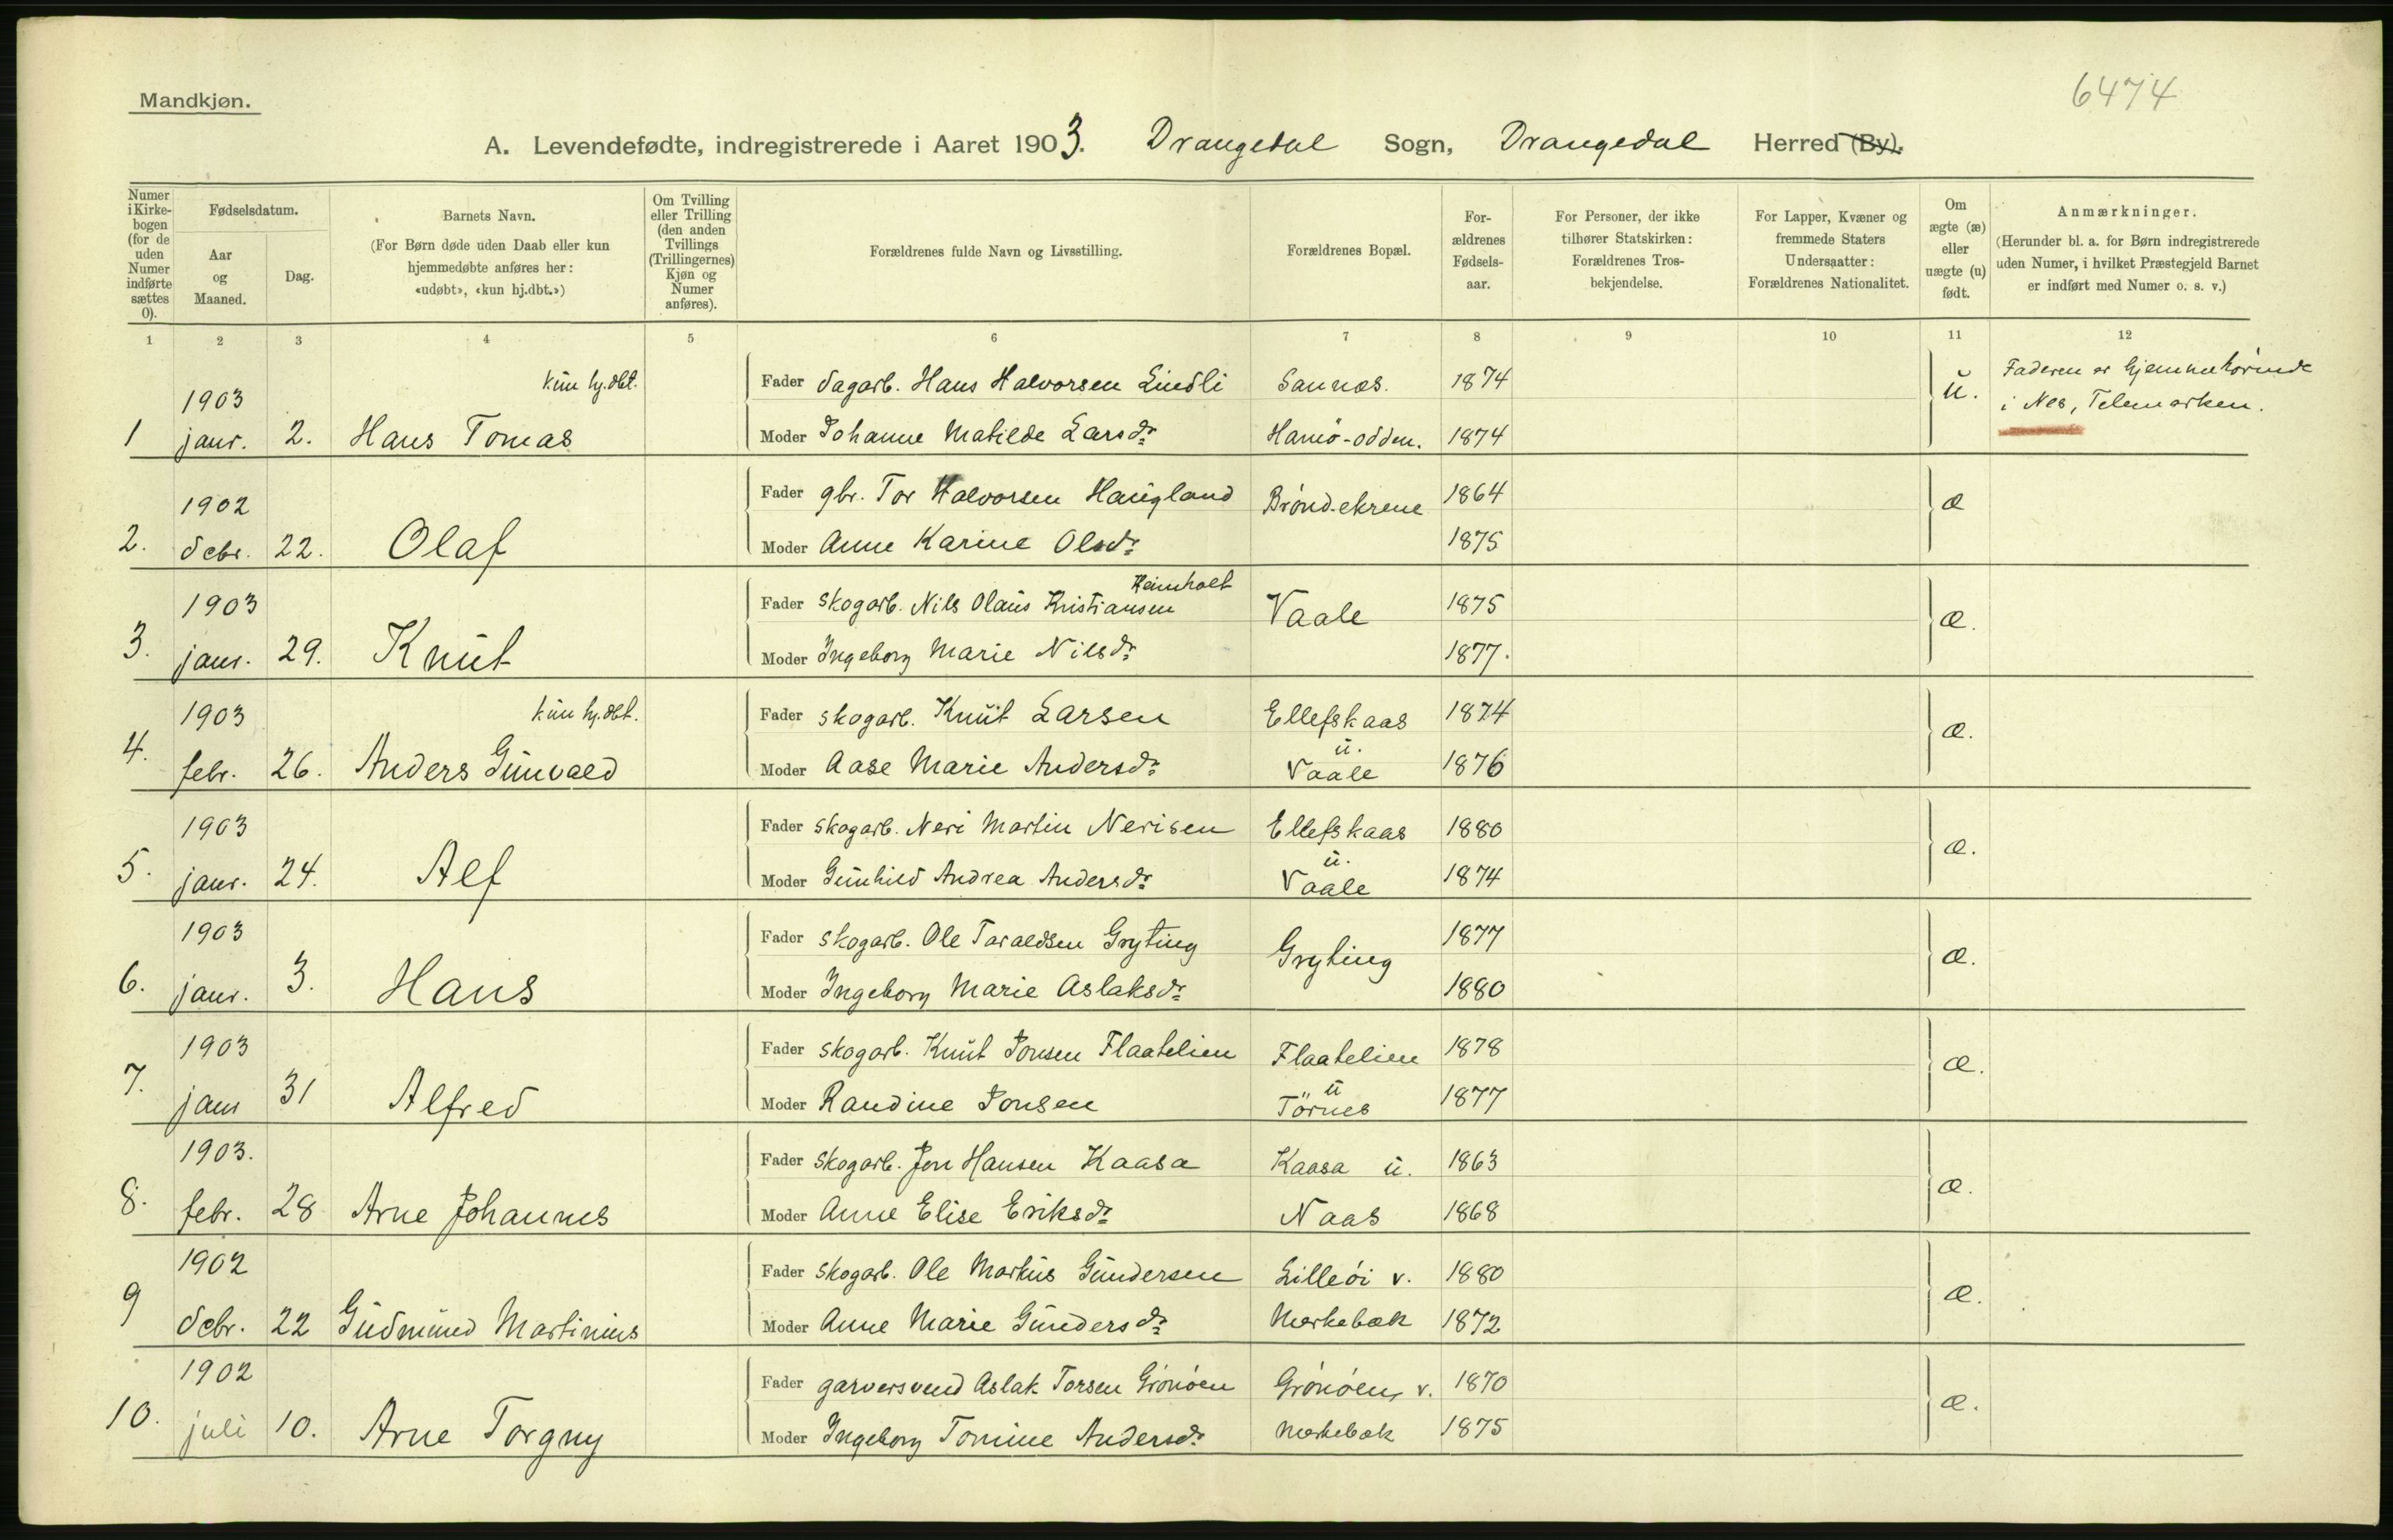 6474
Mandkjøn.
A. Levendefødte, indregistrerede i Aaret 1903. Drangedal Sogn, Drangedal Herred (By).
Numer i Kirke-bogen (for de uden Numer indførte sættes 0).
Fødselsdatum.
Aar og Maaned.
Dag.
Barnets Navn.
(For Børn døde uden Daab eller kun hjemmedøbte anføres her: «udøbt», «kun hj.dbt.»)
Om Tvilling eller Trilling (den anden Tvillings (Trillingernes) Kjøn og Numer anføres).
Forældrenes fulde Navn og Livsstilling.
Forældrenes Bopæl.
For-ældrenes Fødsels-aar.
For Personer, der ikke tilhører Statskirken: Forældrenes Tros-bekjendelse.
For Lapper, Kvæner og fremmede Staters Undersaatter: Forældrenes Nationalitet.
Om ægte (æ) eller uægte (u) født.
Anmærkninger.
(Herunder bl. a. for Børn indregistrerede uden Numer, i hvilket Præstegjeld Barnet er indført med Numer o. s. v.)
1 2 3 4 5 6 7 8 9 10 11 12
1903 kun hj.dbt. Fader dagarb. Hans Halvorsen Lindli Sannæs. 1874 u. Faderen er hjemmehørende i Nes, Telemarken.
1 janr. 2. Hans Tomas Moder Johanne Matilde Larsdr Hamo-odden. 1874
1902 Fader gbr. Tor Halvorsen Haugland Brønd-ekrene 1864 æ
2. debr. 22. Olaf Moder Anne Karine Olsdr 1875
Heimholt
1903 Fader skogarb. Nils Olaus Kristiansen Vaale 1875 æ.
3. janr. 29. Knut Moder Ingeborg Marie Nilsdr 1877.
1903 kun hj.dbt. Fader skogarb. Knut Larsen Ellefskaas 1874 æ.
u.
4. febr. 26. Anders Gunvald Moder Aase Marie Andersdr Vaale 1876
1903 Fader skogarb. Neri Martin Nerisen Ellefskaas 1880 æ.
u.
5. janr. 24. Alf Moder Gunhild Andrea Andersdr Vaale 1874
1903 Fader skogarb. Ole Taraldsen Gryting Gryting 1877 æ.
6. janr. 3. Hans Moder Ingeborg Marie Aslaksdr 1880
1903 Fader skogarb. Knut Jonsen Flaatelien Flaatelien 1878 æ.
u
7. janr 31 Alfred Moder Randine Jonsen Törnes 1877
1903. Fader skogarb. Jon Hansen Kaasa Kaasa u. 1863 æ.
8. febr. 28 Arne Johannes Moder Anne Elise Eriksdr Naas 1868
1902 Fader skogarb. Ole Markus Gundersen Lilleøi v. 1880 æ.
9 debr. 22 Gudmund Martinius Moder Anne Marie Gundersdr Merkebæk 1872
1902 Fader garversvend Aslak Torsen Grønøen Grønøen v. 1870 æ.
10. juli 10. Arne Torgny Moder Ingeborg Tomine Andersdr Merkebæk 1875